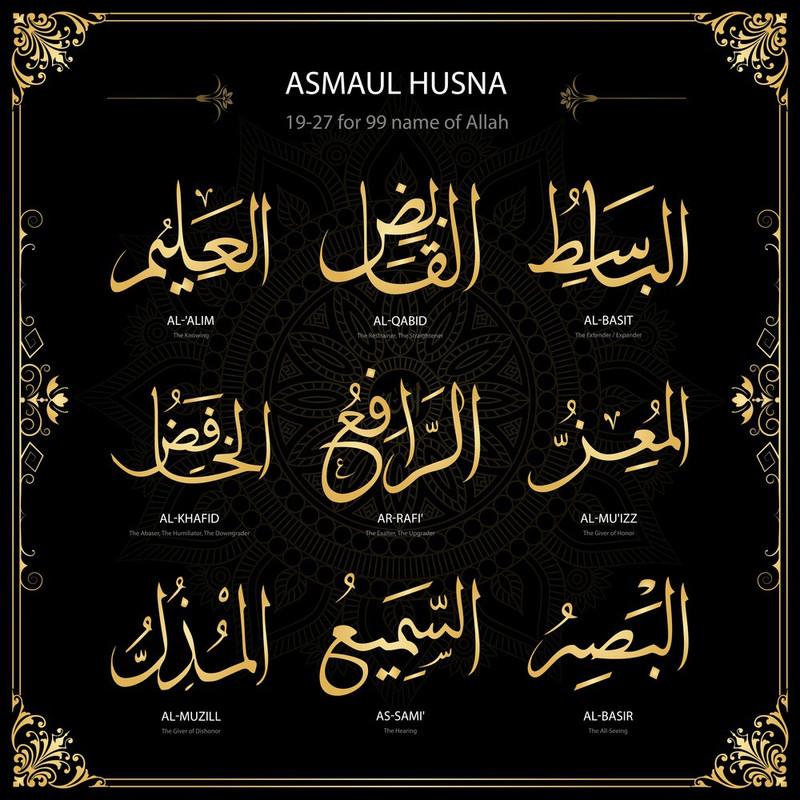 ASMAUL HUSNA
19-27 for 99 name of Allah
العَلِيْمُ
القَابِضُ
البَاسِطُ
AL-'ALIM
AL-QABID
AL-BASIT
The Knowing
The Restrainer, The Straightener
The Extender / Expander
الخَافِضُ
الرَّافِعُ
المُعِزُّ
AL-KHAFID
AR-RAFI'
AL-MU'IZZ
The Abaser, The Humiliator, The Downgrader
The Exalter, The Upgrader
The Giver of Honor
المُذِلُّ
السَّمِيعُ
البَصِرُ
AL-MUZILL
AS-SAMI'
AL-BASIR
The Giver of Dishonor
The Hearing
The All-Seeing